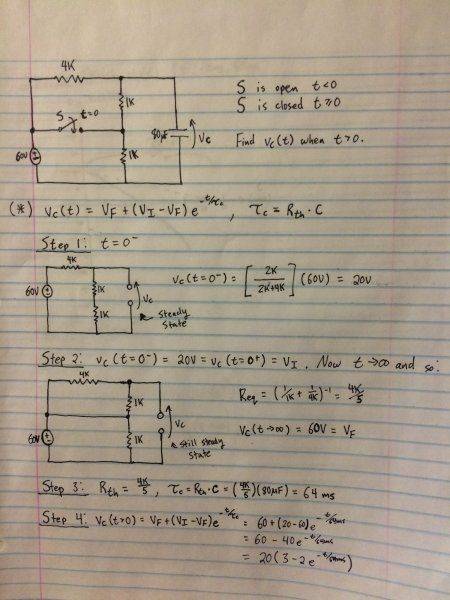 4K
S is open t<0
1K
S is closed t≥0
S t=0
80µF
Vc
Find Vc(t) when t>0.
60V
1K
(*) Vc(t) = VF + (VI - VF) e^-t/τc , τc = Rth · C
Step 1: t=0-
4K
60V
1K
1K
Vc
steady state
Vc(t=0-) = [2K / 2K+4K] (60V) = 20V
Step 2: Vc(t=0-) = 20V = Vc(t=0+) = VI . Now t→∞ and so:
4K
1K
1K
60V
Vc
still steady state
Req = (1/1K + 1/4K)^-1 = 4K/5
Vc(t→∞) = 60V = VF
Step 3: Rth = 4K/5 , τc = Rth·C = (4K/5)(80µF) = 64 ms
Step 4: Vc(t>0) = VF + (VI - VF) e^-t/τc = 60 + (20-60) e^-t/64ms
= 60 - 40 e^-t/64ms
= 20(3 - 2 e^-t/64ms)